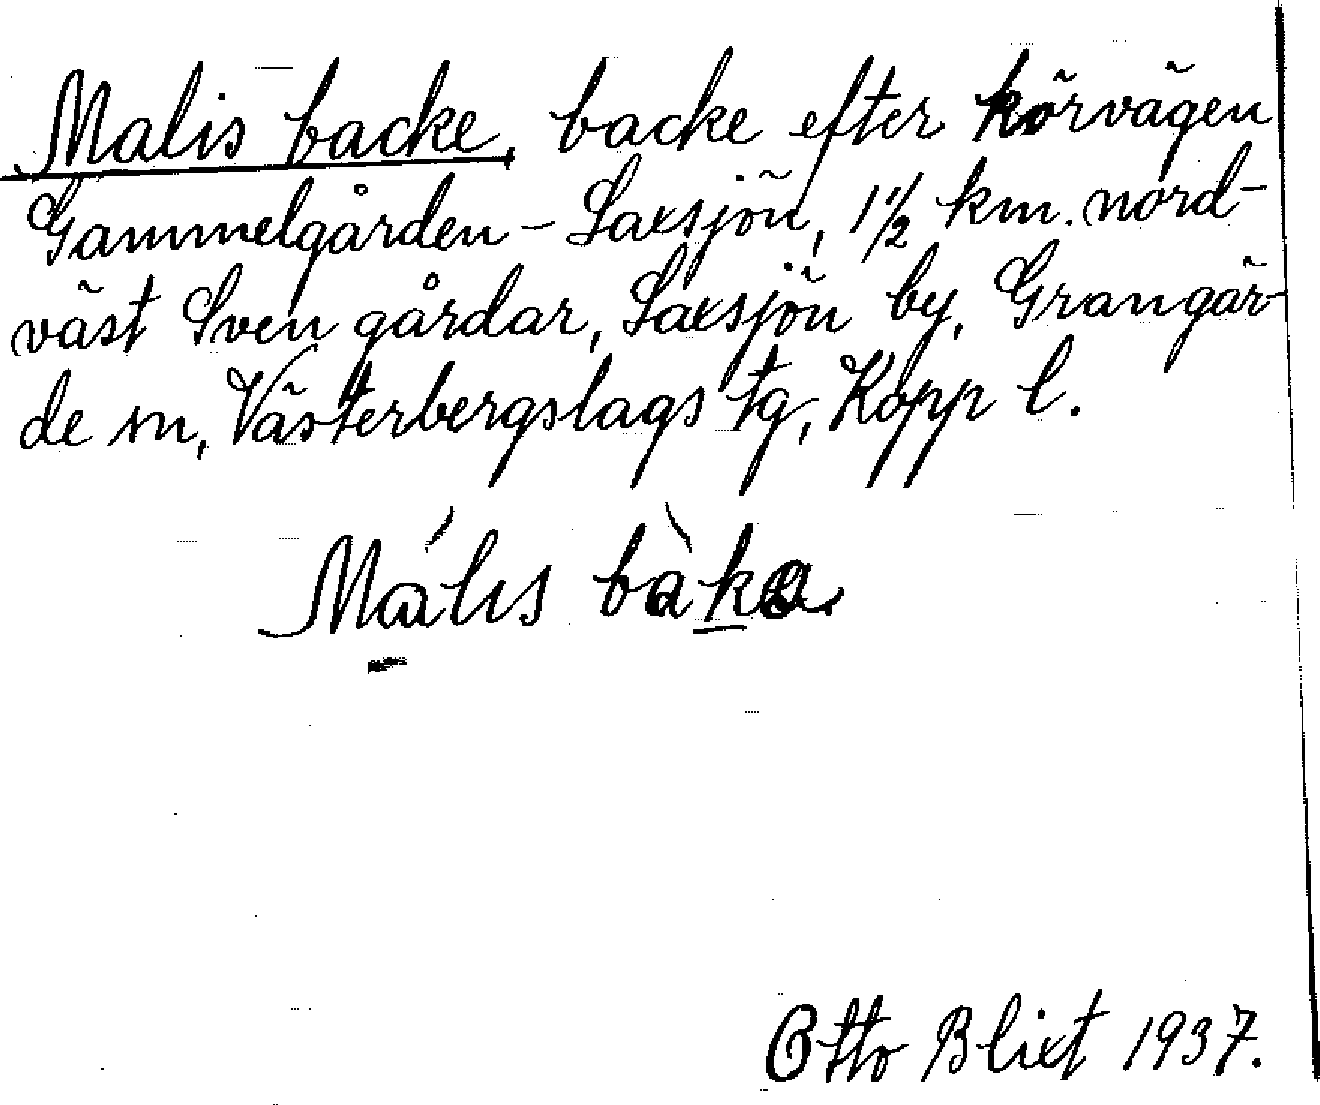 Malis backe, backe efter körvägen
Gammelgården - Saxsjön, 1 1/2 km. nord-
väst Sven gårdar, Saxsjön by, Grangär-
de sn, Västerbergslags tg, Kopp l.
Málıs bàka
Otto Blixt 1937.